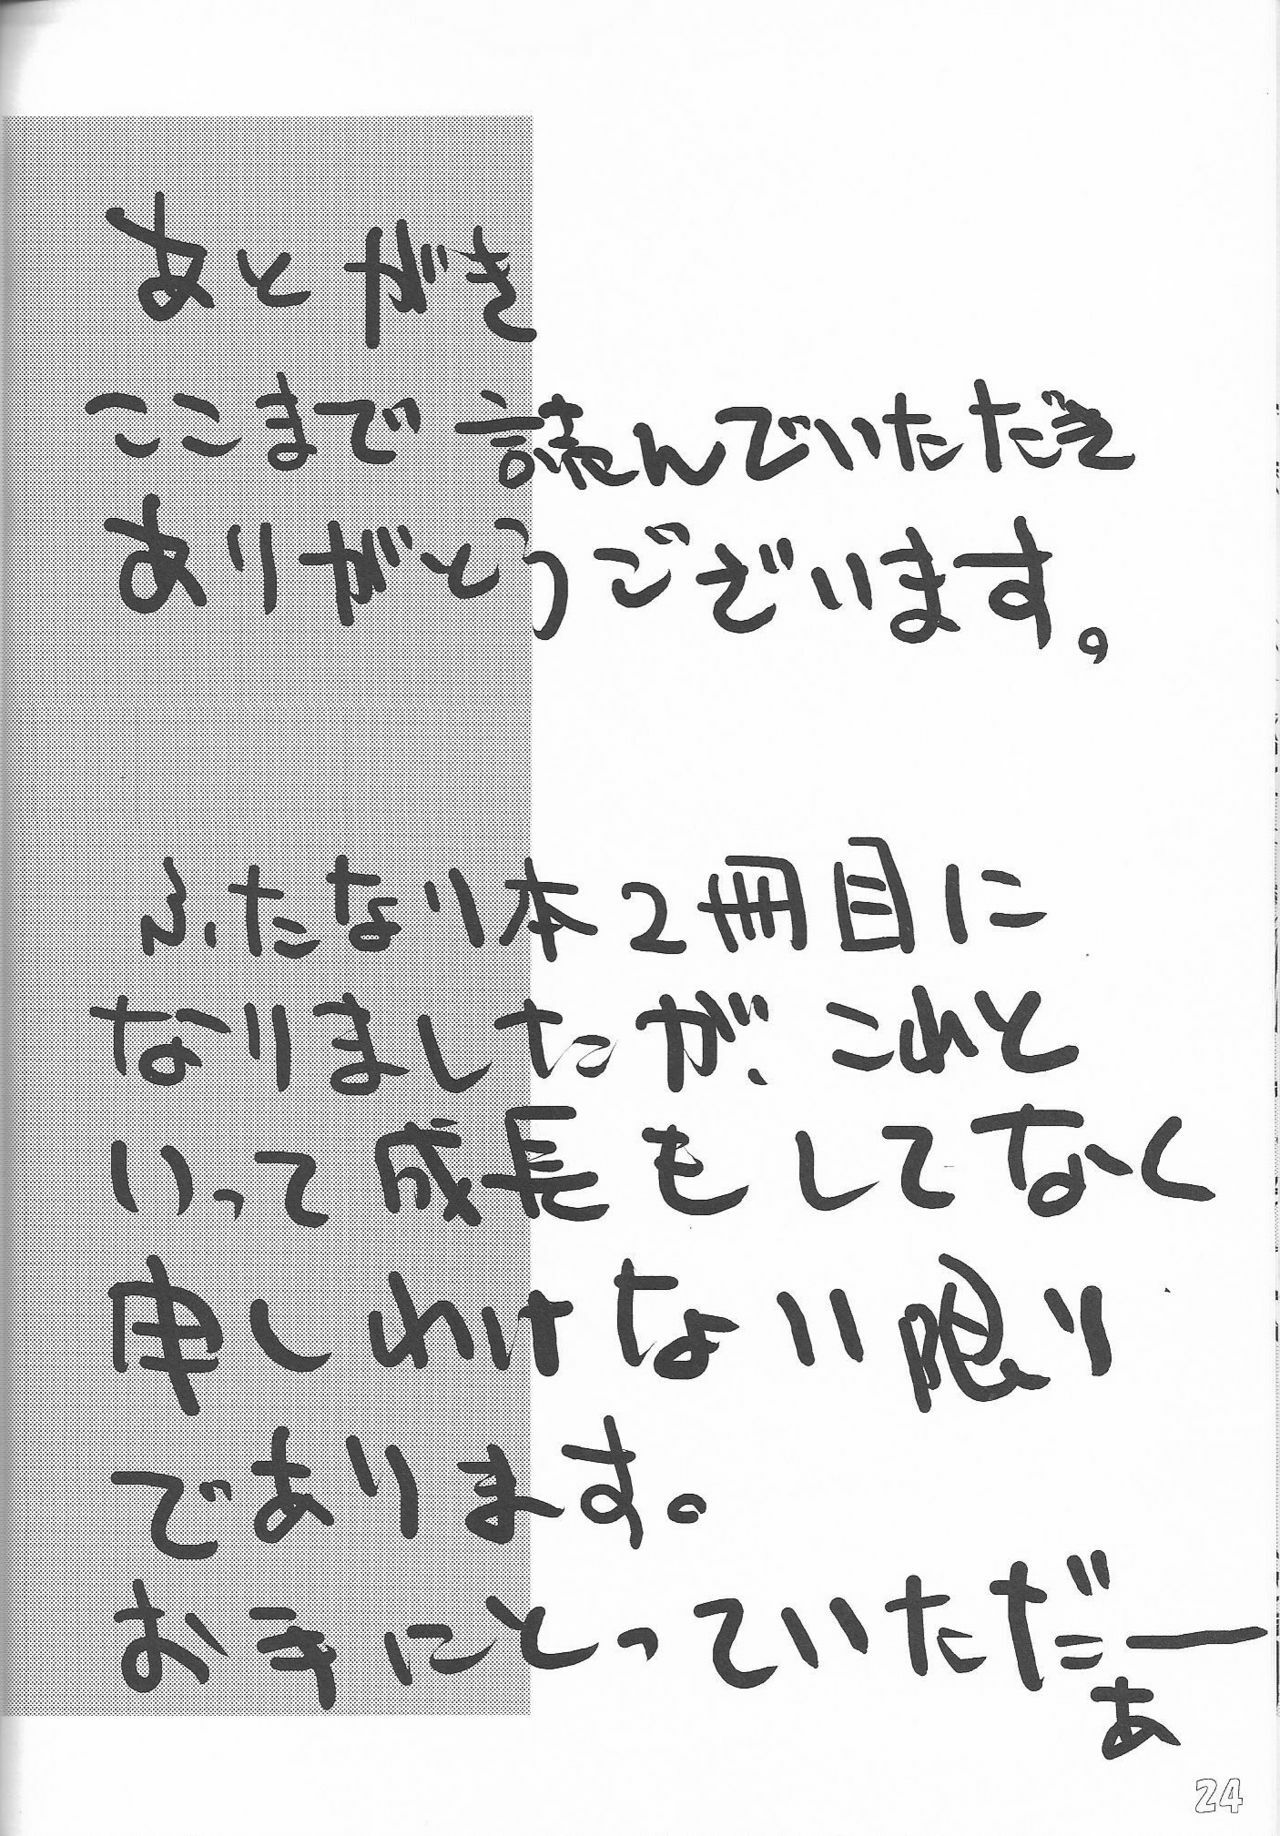 あとがき
ここまで読んでいただき
ありがとうございます。
ふたなり本2冊目に
なりましたが、これと
いって成長もしてなく
申しわけない限り
であります。
お手にとっていただー
あ
24